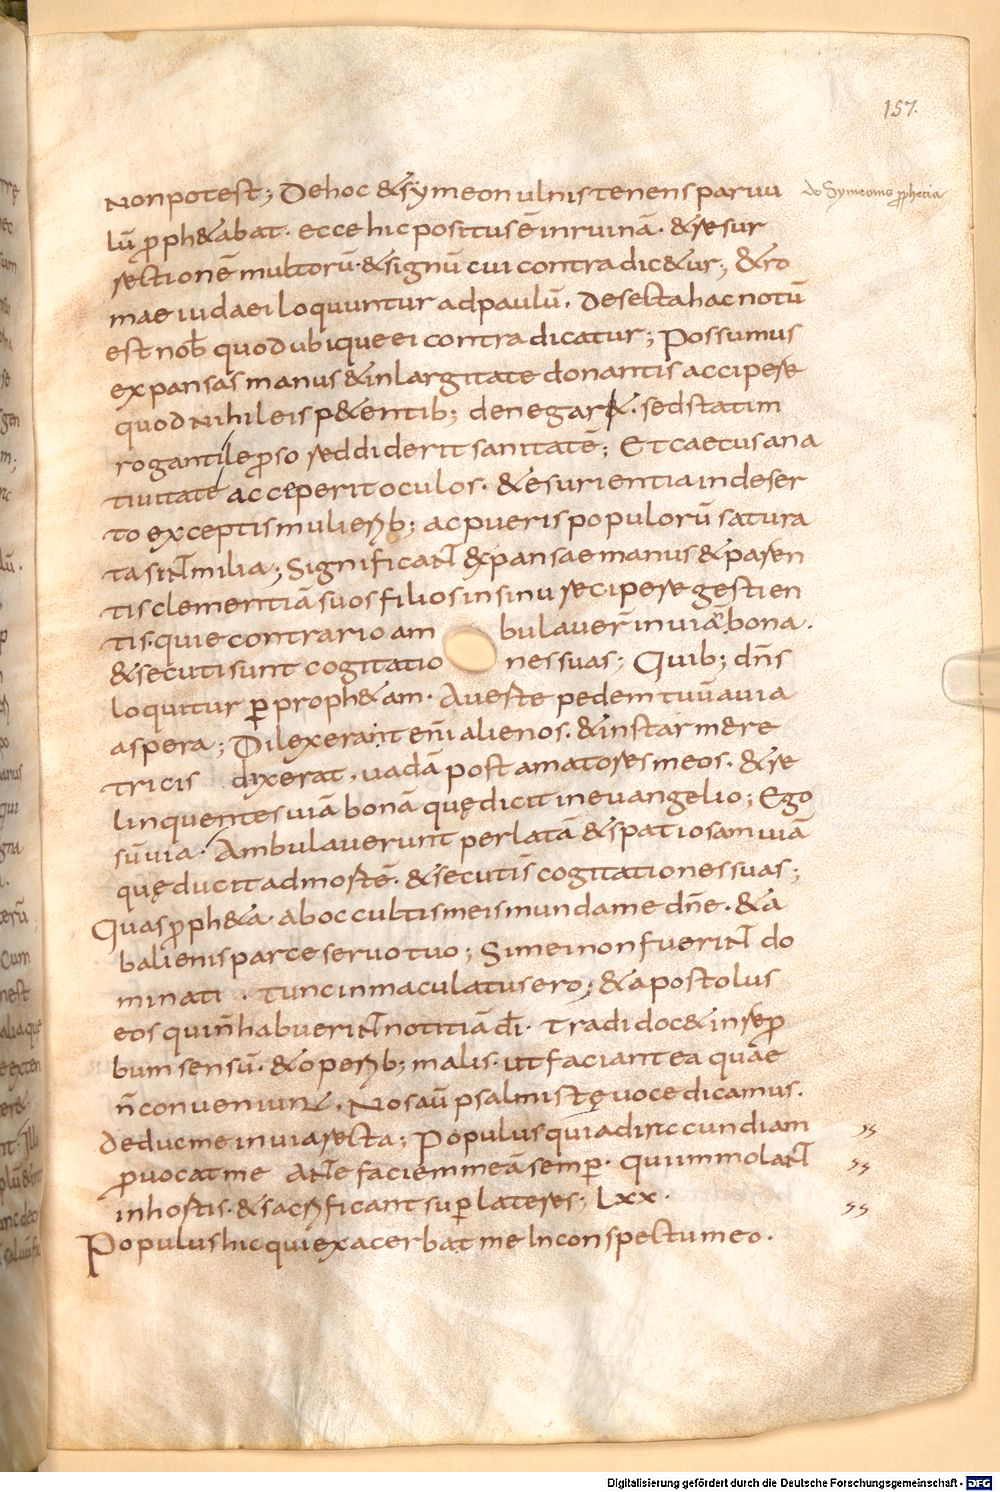 157.
Non potest; De hoc & symeon ulnis tenens paruu
de Symeonis pphetia
lū pph&abat. ecce hic positus ē in ruinā. & resur
rectionē multorū. & signū cui contradic&ur; & ro
mae iudaei loquuntur ad paulū. De secta hac notū
est nob quod ubique ei contradicatur; Possumus
expansas manus & in largitate donantis accipere
quod nihil eis p&entib; denegar&. sed statim
roganti lepso reddiderit sanitatē; Et caecus a na
tiuitate acceperit oculos. & esurientia in deser
to exceptis mulierib; ac pueris populorū satura
ta sint milia; Significant expansae manus & paren
tis clementiā suos filios in sinu recipere gestien
tis. qui e contrario ambulauer in uiā bona.
& secuti sunt cogitationes suas; Quib; dn̄s
loquitur p proph&am. Auerte pedem tuū a uia
aspera; Dilexerant eni alienos. & instar mere
tricis dixerat. uadā post amatores meos. & re
linquentes uiā bonā quę dicit in euangelio; Ego
sū uia. Ambulauerunt per latā & spatiosam uiā
quę ducit ad mortē. & secuti s̄ cogitationes suas;
Quas pph&a. ab occultis meis munda me dn̄e. & a
b alienis parce seruo tuo; Si mei non fuerint do
minati. tunc inmaculatus ero; & apostolus
eos qui n̄ habuerint notitiā dī. tradi doc& in repro
bum sensū. & operib; malis. ut faciant ea quae
n̄ conueniunt. Nos aū psalmistę uoce dicamus.
deduc me in uia recta; Populus qui ad iracundiam
puocat me ante faciem meā semp. qui immolant
in hortis. & sacrificant sup lateres; Lxx.
Populus hic qui exacerbat me In conspectu meo.
Digitalisierung gefördert durch die Deutsche Forschungsgemeinschaft - DFG